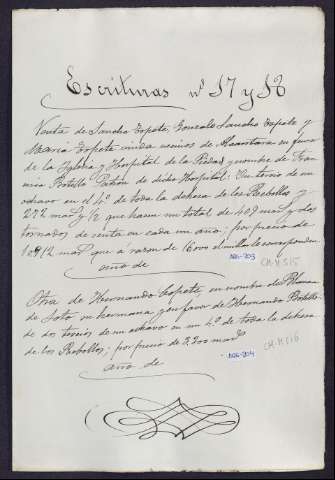 Escrituras nº 17 y 18
Venta de Sancho Topete, Gonzalo Sancho Topete y
María Topete vecinos de Alcantara en favor
de la Iglesia y Hospital de la Piedad y nombre de Fran
Portillo Patrón de dicho Hospital: Un tercio de un
ochavo en el 4º de toda la dehesa de los Rebollos y
272 mars y 1/2 que hacen un total de 409 mars y dos
tornados de renta en cada un año; por precio de
10912 mars que á razon de 16000 el millar le corresponden
año de
AHN-203
CM-H 515
Otra de Hernando Topete, en nombre de Blanca
de Soto su hermana y en favor de Hernando Portillo
de dos tercios de un ochavo en un 4º de toda la dehesa
de los Rebollos; por precio de 3200 mars
AHN-204
CM-H 516
año de